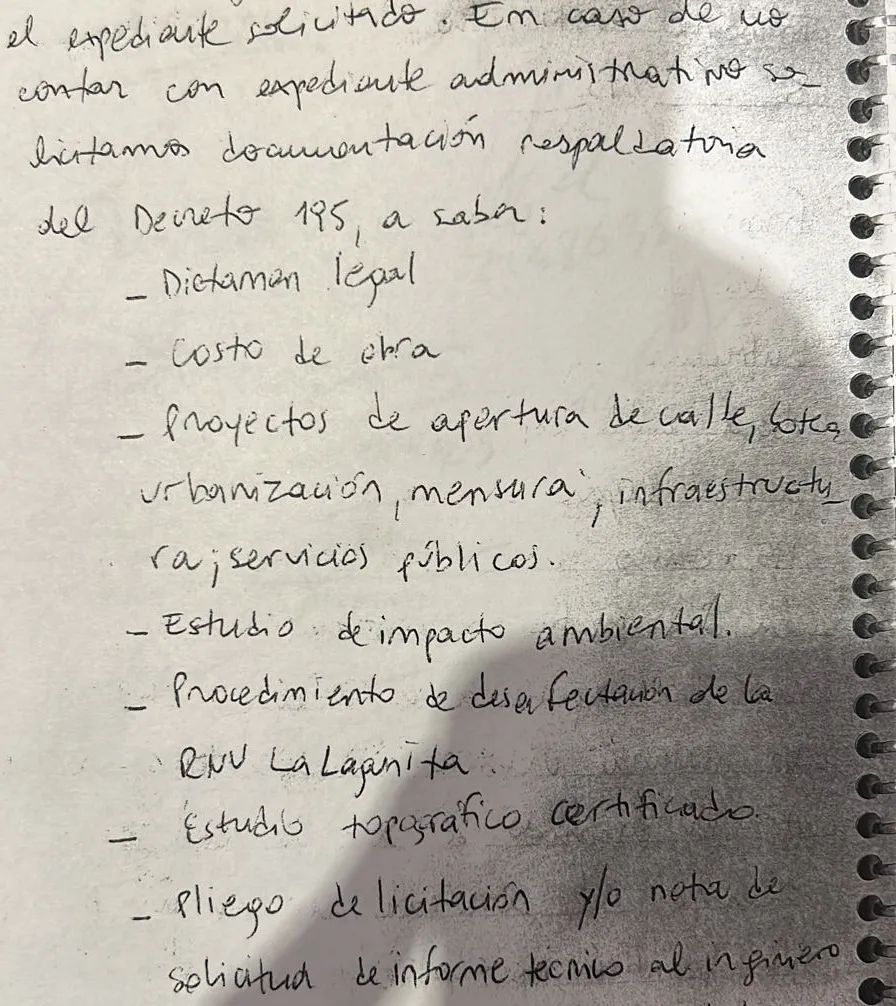 el expediente solicitado. En caso de no
contar con expediente administrativo so_
licitamos documentación respaldatoria
del Decreto 195, a saber:
_ Dictamen legal
_ Costo de obra
_ Proyectos de apertura de calle, loteo,
urbanización, mensura, infraestructu_
ra; servicios públicos.
_ Estudio de impacto ambiental.
_ Procedimiento de desafectación de la
RNU La Lagunita.
_ Estudio topográfico certificado.
_ Pliego de licitación y/o nota de
solicitud de informe técnico al ingeniero